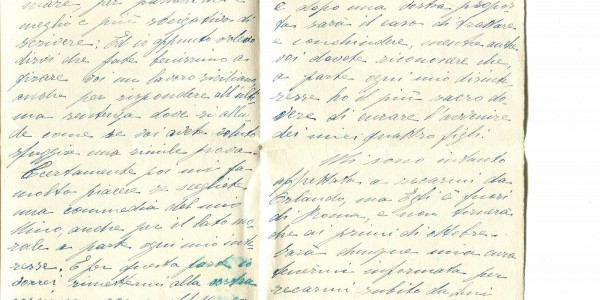 mare per parlarne è
meglio e più sbrigativo di
scrivere: Ed io appunto volevo
dirvi che fate benissimo a
girare voi un lavoro siciliano,
anche per rispondere all'ulti
ma sentenza dove si allu
de come se voi aveste voluto
sfuggire una simile prova.
Certamente poi mi fa
molto piacere se scegliete
una commedia del mio
Nino, anche per il lato mo
rale a parte ogni mio inte
resse. E per questa parte io
vorrei rimettermi alla vostra
e dopo una vostra propos
ta sarà il caso di trattare
e conchiudere, mentre anche
voi dovete riconoscere che,
a parte ogni mio disinte
resse ho il più sacro do
vere di curare l'avvenire
dei miei quattro figli.
Mi sono intanto
affrettata a recarmi da
Orlando, ma Egli è fuori
di Roma, e non tornerà
che ai primi di ottobre.
Sarà dunque mia cura
tenermi informata per
recarmi subito da